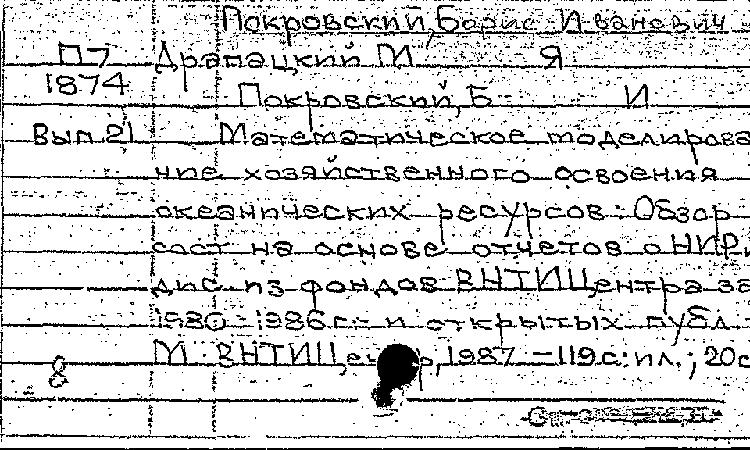 Покровский, Борис Иванович
П7 Драпацкий М Я
1874
Покровский, Б И
Вып.21 Математическое моделирова
ние хозяйственного освоения
океанических ресурсов: Обзор
сост на основе отчетов о НИР и
дис из фондов ВНТИЦентра за
1980-1986 г.г и открытых публ
М ВНТИЦентр, 1987 -119с: ил.; 20с
8